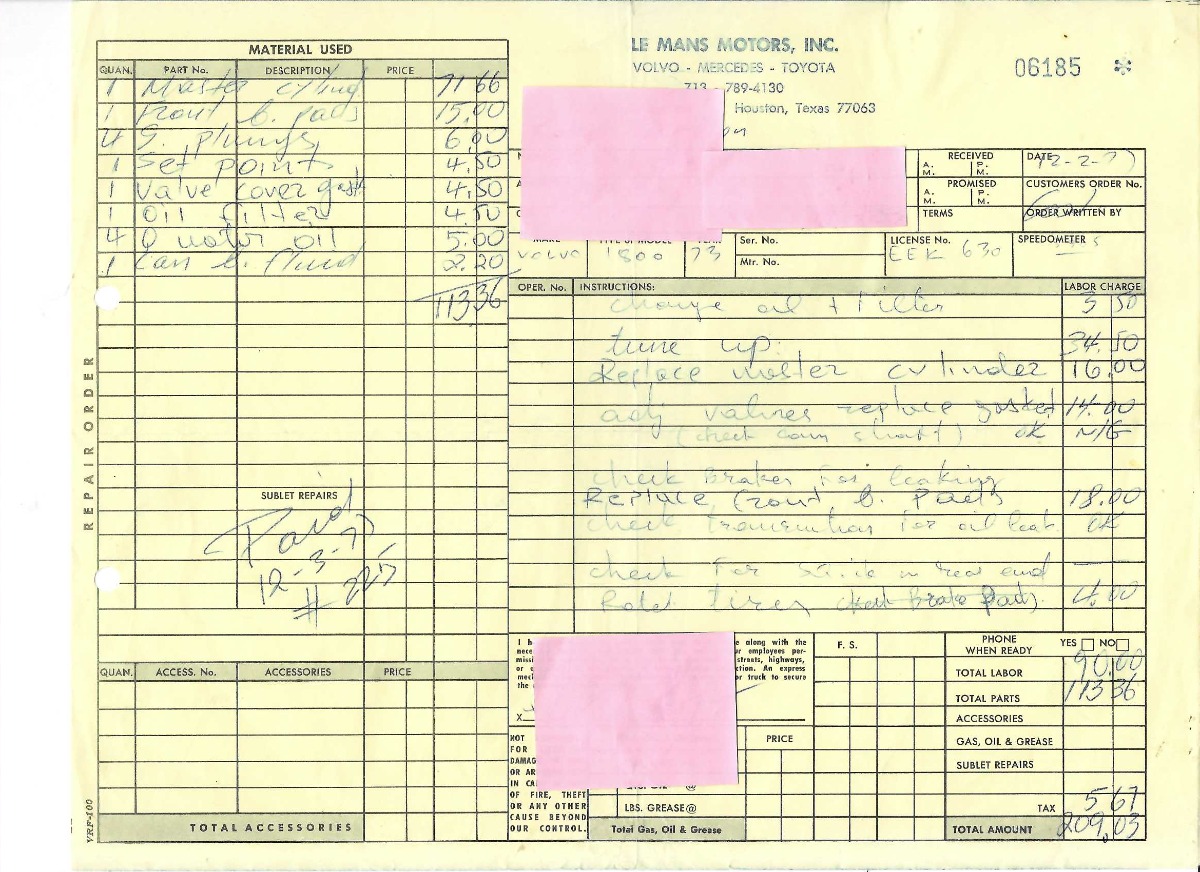 MATERIAL USED
QUAN. PART No. DESCRIPTION PRICE
1 Master cylind 71 66
1 Front b. pads 15.00
4 S. plungs 6 00
1 Set point 4.50
1 Valve cover gask 4.50
1 oil filter 4.50
4 Q motor oil 5.00
1 Can b. fluid 2.20
113 36
REPAIR ORDER
SUBLET REPAIRS
Paid
12-3-77
#
QUAN. ACCESS. No. ACCESSORIES PRICE
TOTAL ACCESSORIES
VRF-100
LE MANS MOTORS, INC.
VOLVO - MERCEDES - TOYOTA
713 - 789-4130
Houston, Texas 77063
06185 *
RECEIVED
A. M. P. M.
DATE 12-2-77
PROMISED
A. M. P. M.
CUSTOMERS ORDER No.
TERMS
ORDER WRITTEN BY
MAKE TYPE or MODEL YEAR
Volvo 1800 73
Ser. No.
Mtr. No.
LICENSE No. EEK 630
SPEEDOMETER
OPER. No. INSTRUCTIONS: LABOR CHARGE
change oil + filter 3 50
tune up. 34.50
Replace master cylinder 16.00
adj valves replace gasket 14.00
(check cam shaft) OK N/G
check Brakes for leaking
Replace front b. Pads 18.00
check transmition for oil leak. OK
check for in rear end —
Rotet tires 4.00
I h e along with the
nece ur employees per-
missi streets, highways,
or e ction. An express
mech or truck to secure
the a
X
NOT
FOR
DAMAG
OR AR
IN CA
OF FIRE, THEFT
OR ANY OTHER
CAUSE BEYOND
OUR CONTROL.
PRICE
LBS. GREASE @
Total Gas, Oil & Grease
F. S.
PHONE WHEN READY YES NO
TOTAL LABOR 90.00
TOTAL PARTS 113 36
ACCESSORIES
GAS, OIL & GREASE
SUBLET REPAIRS
TAX 5 67
TOTAL AMOUNT 209.03